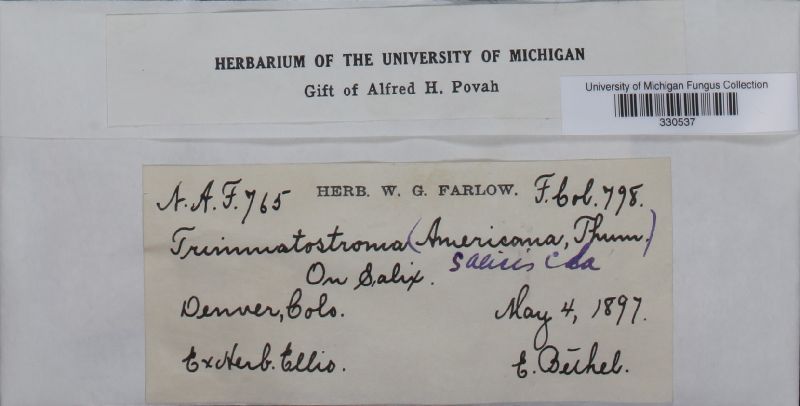 HERBARIUM OF THE UNIVERSITY OF MICHIGAN
Gift of Alfred H. Povah
University of Michigan Fungus Collection
330537
N.A.F. 765 HERB. W. G. FARLOW. F. Col. 798.
Trimmatostroma (Americana, Thum.)
salicis Cda
On Salix.
Denver, Colo. May 4, 1897.
Ex Herb. Ellis. E. Bethel.